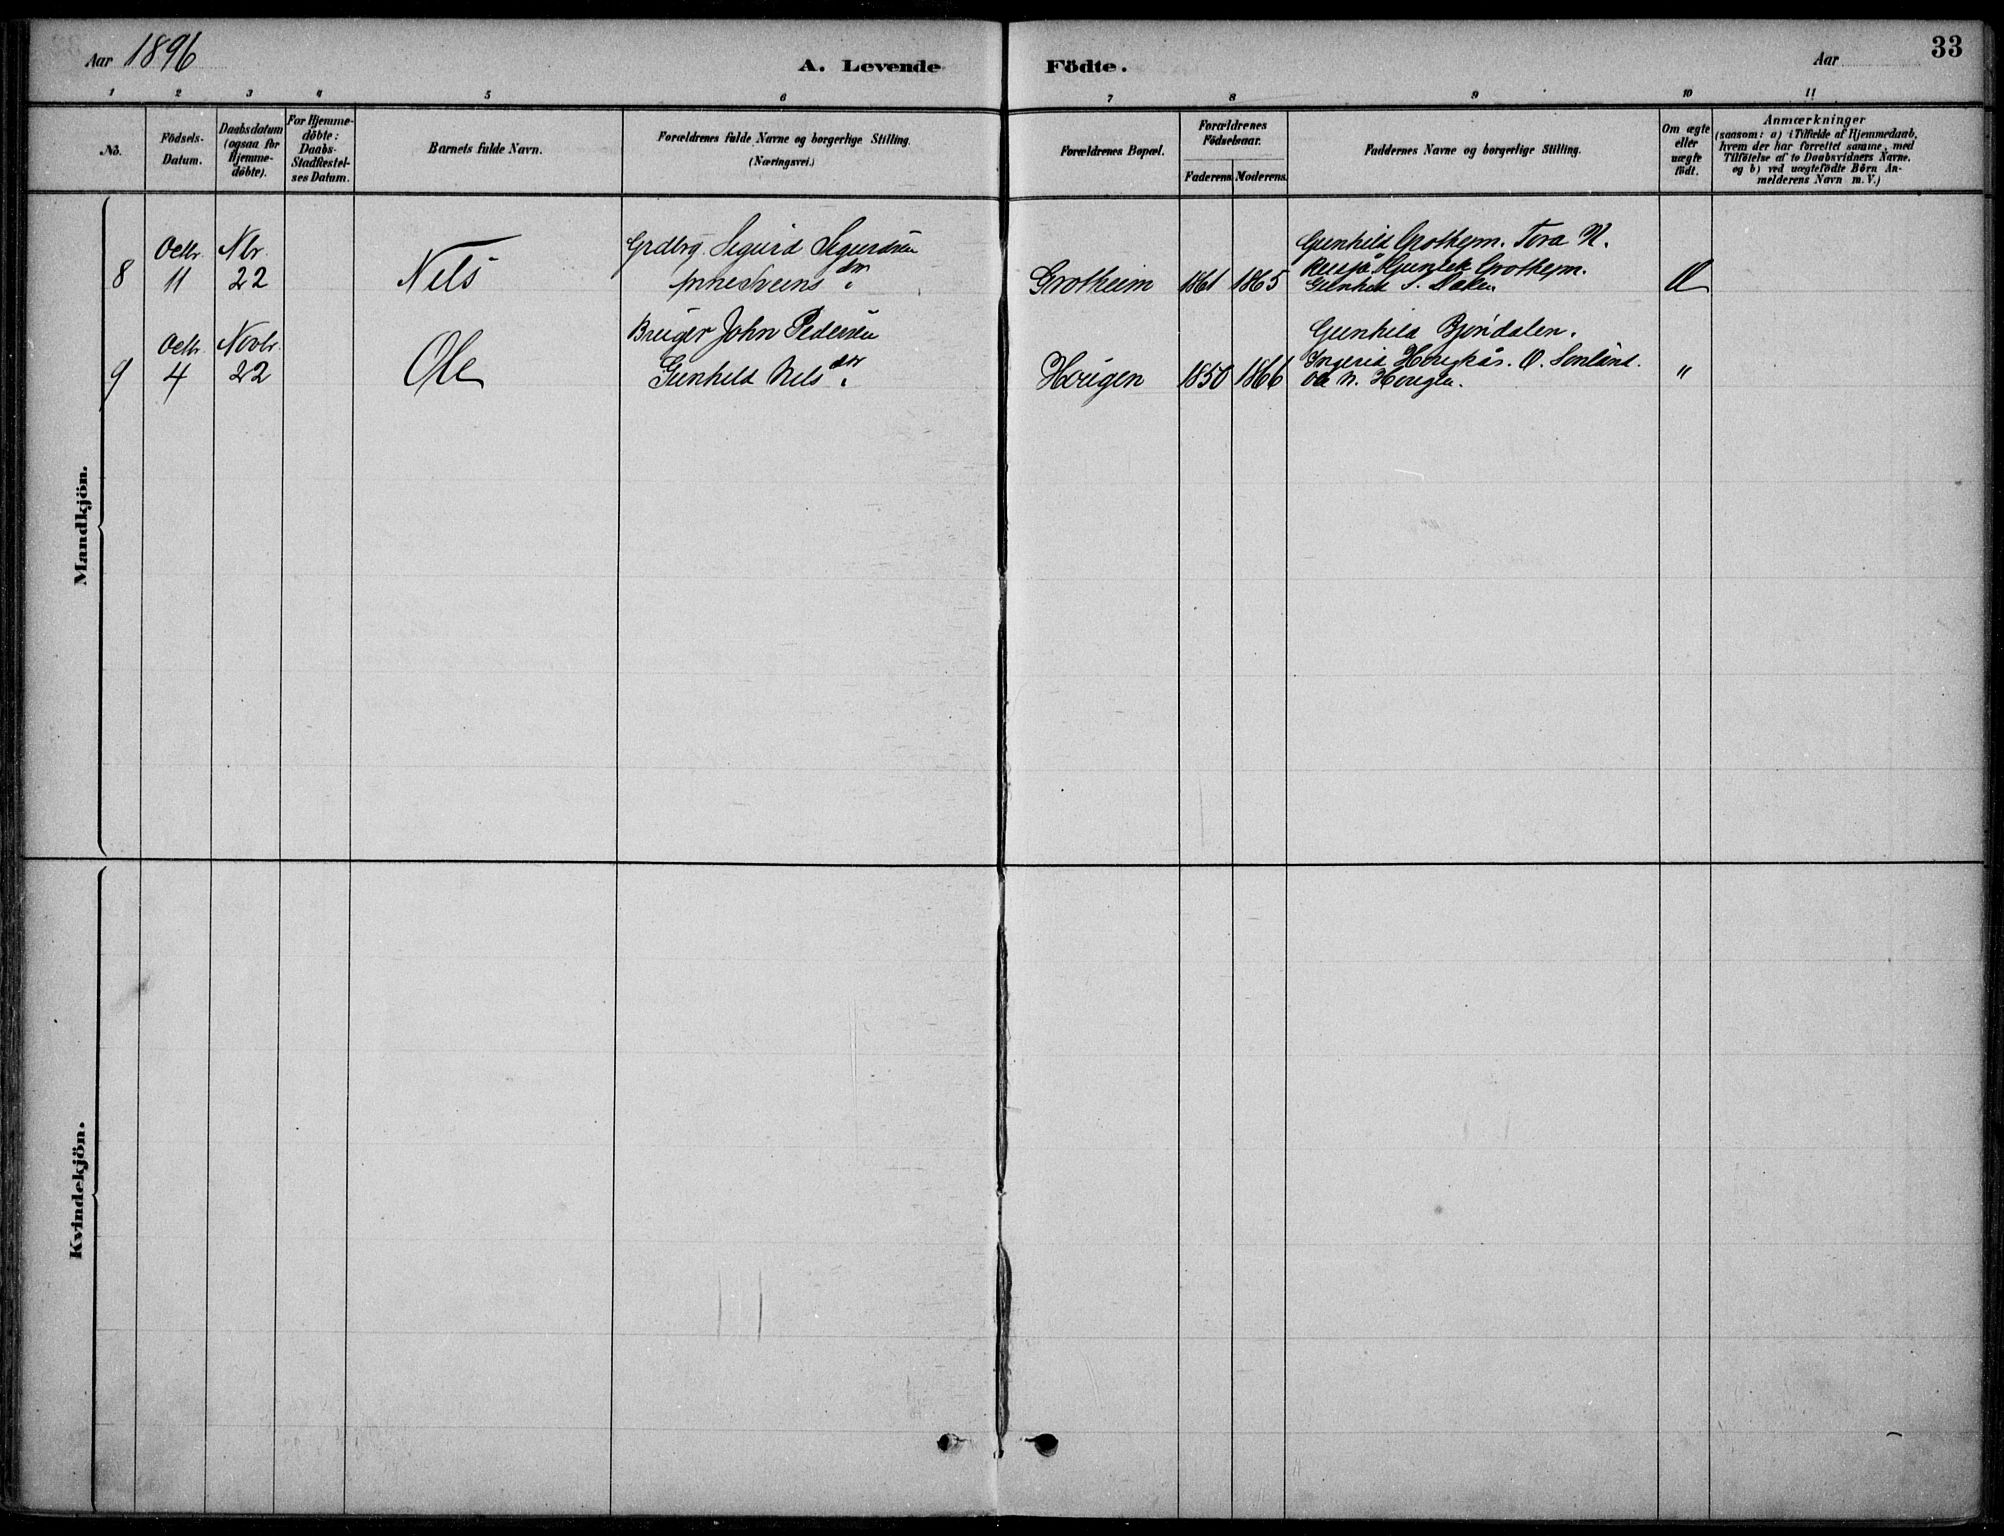 Aar 1896
A. Levende
Födte.
Aar
33
1 2 3 4 5 6 7 8 9 10 11
No.
Födsels-
Datum.
Daabsdatum
(ogsaa for
Hjemme-
döbte).
For Hjemme-
döbte:
Daabs-
Stadfæstel-
ses Datum.
Barnets fulde Navn.
Forældrenes fulde Navne og borgerlige Stilling.
(Næringsvei.)
Forældrenes Bopæl.
Forældrenes
Födselsaar.
Faderens. Moderens.
Faddernes Navne og borgerlige Stilling.
Om ægte
eller
uægte
födt.
Anmærkninger
(saasom: a) i Tilfælde af Hjemmedaab,
hvem der har forrettet samme, med
Tilföielse af to Daabsvidners Navne.
og b) ved uægtefödte Börn An-
melderens Navn m. V.)
Mandkjön.
8
Octbr.
11
Nbr.
22
Nels
Grdbrg. Sigurd Sigurdsen
Anne Sveins dtr.
Grotheim
1861 1865
Gunhild Grotheim. Tora N.
Grotheim.
Gunhild S.
9
Octbr.
4
Novbr.
22
Ole
Bruger John Pedersen
Gunhild Nels dtr.
Hougen
1850 1866
Gunhild Bjøndalen.
Ingerid O.
Ole N. Hougen.
"
Kvindekjön.